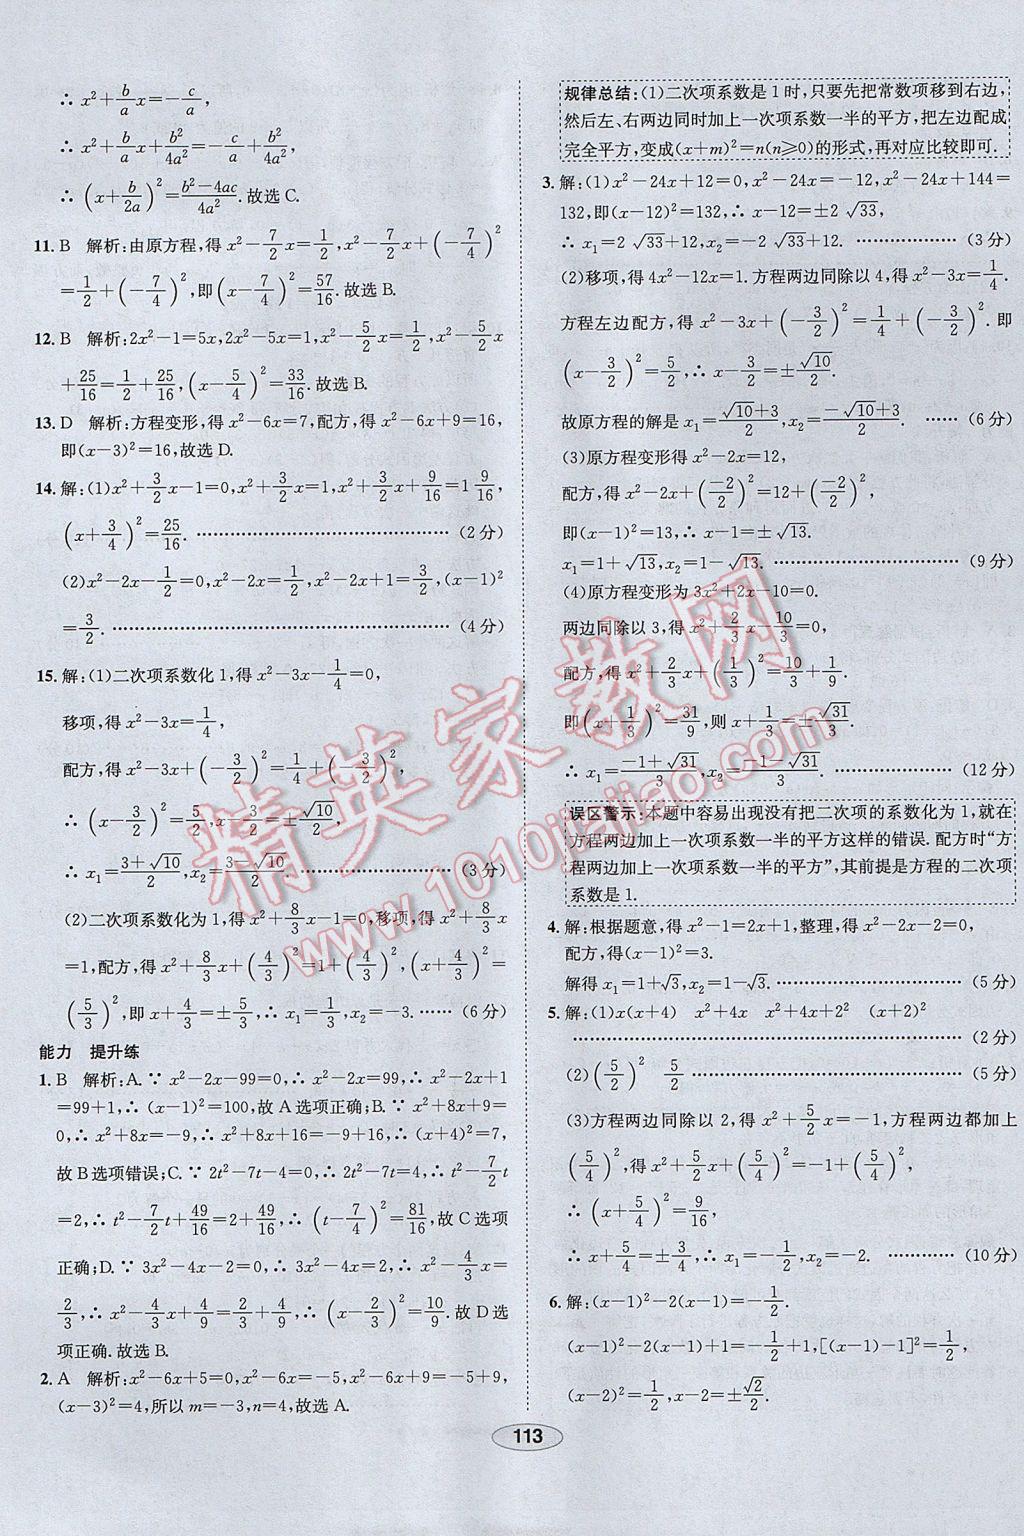 ∴ x²+b/a x=-c/a,
∴ x²+b/a x+b²/4a²=b²/4a²-c/a,
∴ (x+b/2a)²=(b²-4ac)/4a².故选 C.
11. B 解析:由原方程,得 x²-7/2 x=1/2,x²-7/2 x+(-7/4)²
=1/2+(-7/4)²,即(x-7/4)²=57/16.故选 B.
12. B 解析:2x²-1=5x,2x²-5x=1,x²-5/2 x=1/2,x²-5/2 x
+25/16=1/2+25/16,(x-5/4)²=33/16.故选 B.
13. D 解析:方程变形,得 x²-6x=7,配方,得 x²-6x+9=16,
即(x-3)²=16,故选 D.
14. 解:(1)x²+3/2 x-1=0,x²+3/2 x=1,x²+3/2 x+9/16=1 9/16,
(x+3/4)²=25/16. ……………………………… (2 分)
(2)x²-2x-1/2=0,x²-2x=1/2,x²-2x+1=3/2,(x-1)²
=3/2. ……………………………… (4 分)
15. 解:(1)二次项系数化 1,得 x²-3x-1/4=0,
移项,得 x²-3x=1/4,
配方,得 x²-3x+(-3/2)²=1/4+(-3/2)²,
∴ (x-3/2)²=5/2,x-3/2=±√10/2,
∴ x₁=(3+√10)/2,x₂=(3-√10)/2. ……………… (3 分)
(2)二次项系数化为 1,得 x²+8/3 x-1=0,移项,得 x²+8/3 x
=1,配方,得 x²+8/3 x+(4/3)²=1+(4/3)²,(x+4/3)²=
(5/3)²,即 x+4/3=±5/3,∴ x₁=1/3,x₂=-3. …… (6 分)
能力 提升练
1. B 解析:A. ∵ x²-2x-99=0,∴ x²-2x=99,∴ x²-2x+1
=99+1,∴ (x-1)²=100,故 A 选项正确;B. ∵ x²+8x+9=
0,∴ x²+8x=-9,∴ x²+8x+16=-9+16,∴ (x+4)²=7,
故 B 选项错误;C. ∵ 2t²-7t-4=0,∴ 2t²-7t=4,∴ t²-7/2 t
=2,∴ t²-7/2 t+49/16=2+49/16,∴ (t-7/4)²=81/16,故 C 选项
正确;D. ∵ 3x²-4x-2=0,∴ 3x²-4x=2,∴ x²-4/3 x=
2/3,∴ x²-4/3 x+4/9=2/3+4/9,∴ (x-2/3)²=10/9.故 D 选
项正确.故选 B.
2. A 解析:x²-6x+5=0,x²-6x=-5,x²-6x+9=-5+9,
(x-3)²=4,所以 m=-3,n=4,故选 A.
规律总结:(1)二次项系数是 1 时,只要先把常数项移到右边,
然后左、右两边同时加上一次项系数一半的平方,把左边配成
完全平方,变成(x+m)²=n(n≥0)的形式,再对应比较即可.
3. 解:(1)x²-24x+12=0,x²-24x=-12,x²-24x+144=
132,即(x-12)²=132,∴ x-12=±2 √33,
∴ x₁=2 √33+12,x₂=-2 √33+12. ……………… (3 分)
(2)移项,得 4x²-12x=1. 方程两边同除以 4,得 x²-3x=1/4.
方程左边配方,得 x²-3x+(-3/2)²=1/4+(-3/2)². 即
(x-3/2)²=5/2,∴ x-3/2=±√10/2.
故原方程的解是 x₁=(√10+3)/2,x₂=(-√10+3)/2. …… (6 分)
(3)原方程变形得 x²-2x=12,
配方,得 x²-2x+(-2/2)²=12+(-2/2)²,
即(x-1)²=13,∴ x-1=± √13.
x₁=1+ √13,x₂=1- √13. ……………………… (9 分)
(4)原方程变形为 3x²+2x-10=0.
两边同除以 3,得 x²+2/3 x-10/3=0,
配方,得 x²+2/3 x+(1/3)²=10/3+1/9.
即(x+1/3)²=31/9,则 x+1/3=±√31/3.
∴ x₁=(-1+√31)/3,x₂=(-1-√31)/3. ……………… (12 分)
误区警示:本题中容易出现没有把二次项的系数化为 1,就在
方程两边加上一次项系数一半的平方这样的错误. 配方时“方
程两边加上一次项系数一半的平方”,其前提是方程的二次项
系数是 1.
4. 解:根据题意,得 x²-1=2x+1,整理,得 x²-2x-2=0,
配方,得(x-1)²=3.
解得 x₁=1+√3,x₂=1-√3. ……………………… (5 分)
5. 解:(1)x(x+4) x²+4x x²+4x+2² (x+2)²
……………………………… (2 分)
(2)(5/2)² 5/2 ……………………………… (5 分)
(3)方程两边同除以 2,得 x²+5/2 x=-1,方程两边都加上
(5/4)²,得 x²+5/2 x+(5/4)²=-1+(5/4)²,
∴ (x+5/4)²=9/16,
∴ x+5/4=±3/4,∴ x₁=-1/2,x₂=-2. ………… (10 分)
6. 解:(x-1)²-2(x-1)=-1/2.
(x-1)²-2(x-1)+1=-1/2+1,[(x-1)-1]²=1/2,
(x-2)²=1/2,x-2=±√2/2.
113
精英家教网
www.1010jiajiao.com